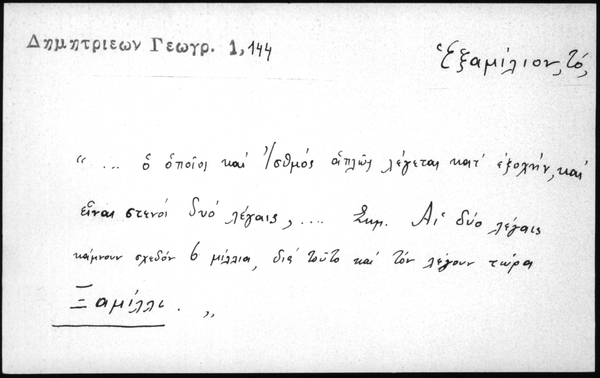 Δημητριεων Γεωγρ. 1, 144
Ἑξαμίλιον, τό,
“ ... ὁ ὁποῖοι καί Ἰσθμός ἁπλῶς λέγεται κατ' ἐξοχήν, καί
εἶναι στενοί δυό λέγαις, .... Σημ. Αἱ δύο λέγαις
κάμνουν σχεδόν 6 μίλλια, διά τοῦτο καί τόν λέγουν τώρα
Ξαμίλλι. „